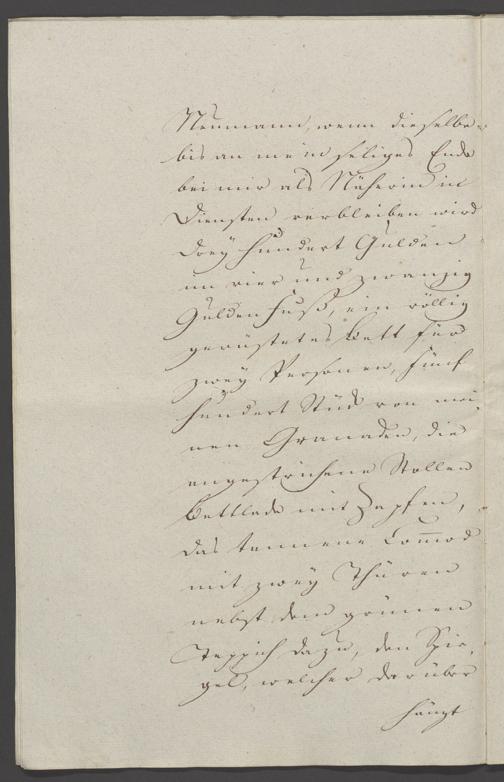 Neumann, wenn dieselbe
bis an mein seliges Ende
bei mir als Näherin in
Diensten verbleiben wird
drey hundert Gulden
im vier und zwanzig
Gulden Fuß, ein völlig
gerüstetes Bett für
zwey Personen, fünf
hundert Stück von mei-
nen Granaden, die
angestrichene Stollen
Bettlade mit Zapfen,
das tannene Com̅od
mit zwey Thüren
nebst dem grünen
Teppich dazu, den Spie-
gel, welcher darüber
hängt